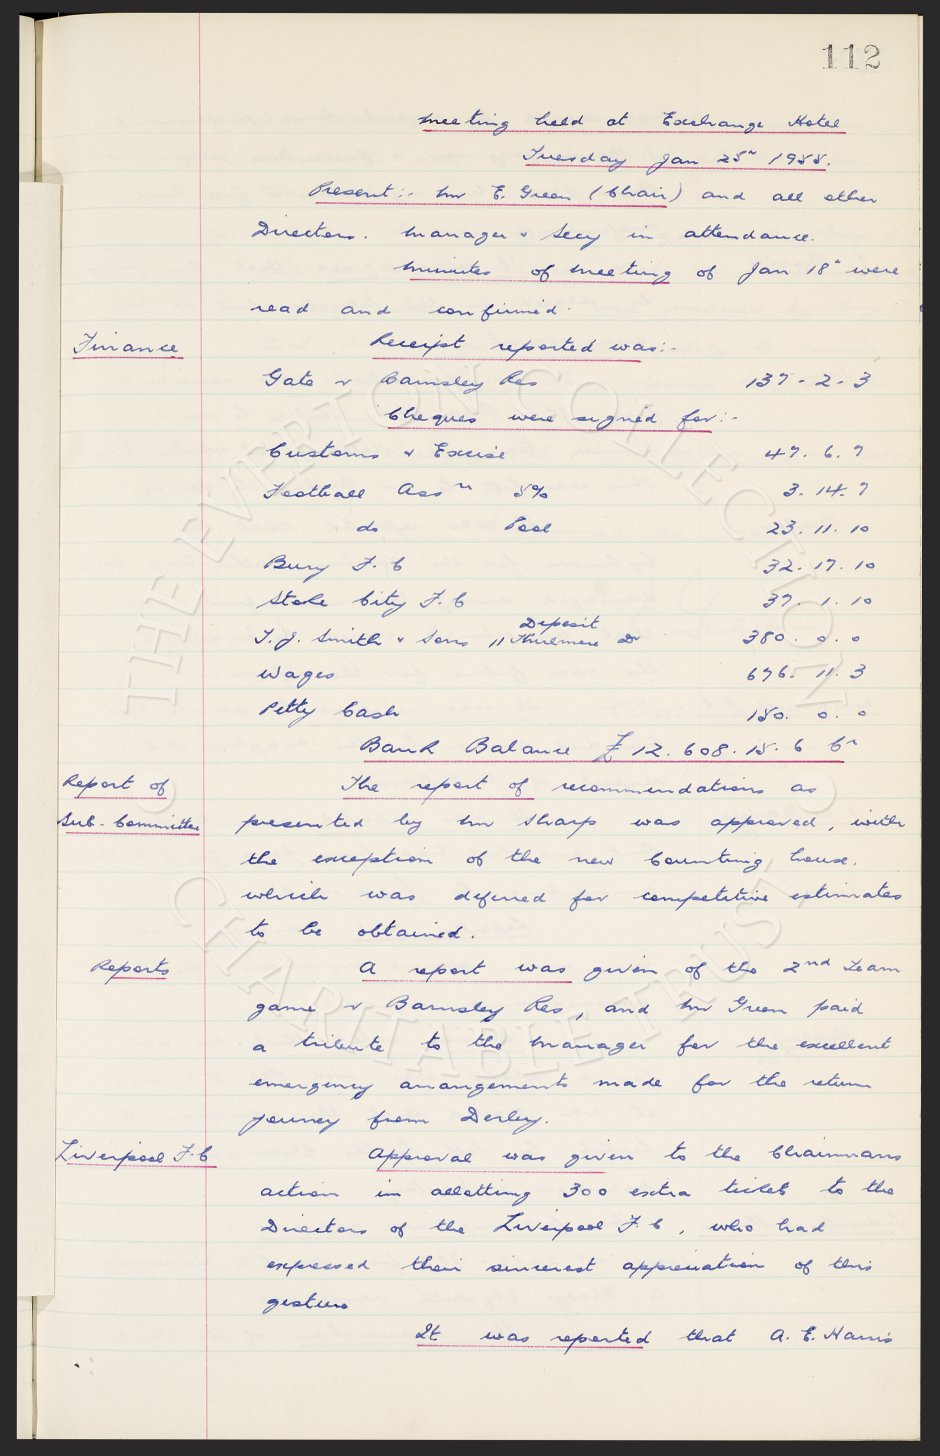 112
Meeting held at Exchange Hotel
Tuesday Jan 25th 1955.
Present:- Mr E. Green (Chair) and all other
Directors. Manager & Secy in attendance.
Minutes of meeting of Jan 18th were
read and confirmed.
Finance
Receipt reported was:-
Gate v Barnsley Res 137 - 2 - 3
Cheques were signed for:-
Customs & Excise 47. 6. 7
Football Assn 5% 3. 14. 7
do Pool 23. 11. 10
Bury F. C 32. 17. 10
Stoke City F. C 37 1. 10
Deposit
T. J. Smith & Sons 11 Thirlmere Dr 380. 0. 0
Wages 676. 11. 3
Petty Cash 150. 0. 0
Bank Balance £12. 608. 15. 6 Cr
Report of
Sub-Committee
The report of recommendations as
presented by Mr Sharp was approved, with
the exception of the new Counting house.
which was deferred for competitive estimates
to be obtained.
Reports
A report was given of the 2nd Team
game v Barnsley Res, and Mr Green paid
a tribute to the Manager for the excellent
emergency arrangements made for the return
journey from Derby.
Liverpool F. C
Approval was given to the Chairmans
action in allotting 300 extra tickets to the
Directors of the Liverpool F. C, who had
expressed their sincerest appreciation of this
gesture
It was reported that A. E. Harris
THE EVERTON COLLECTION
CHARITABLE TRUST